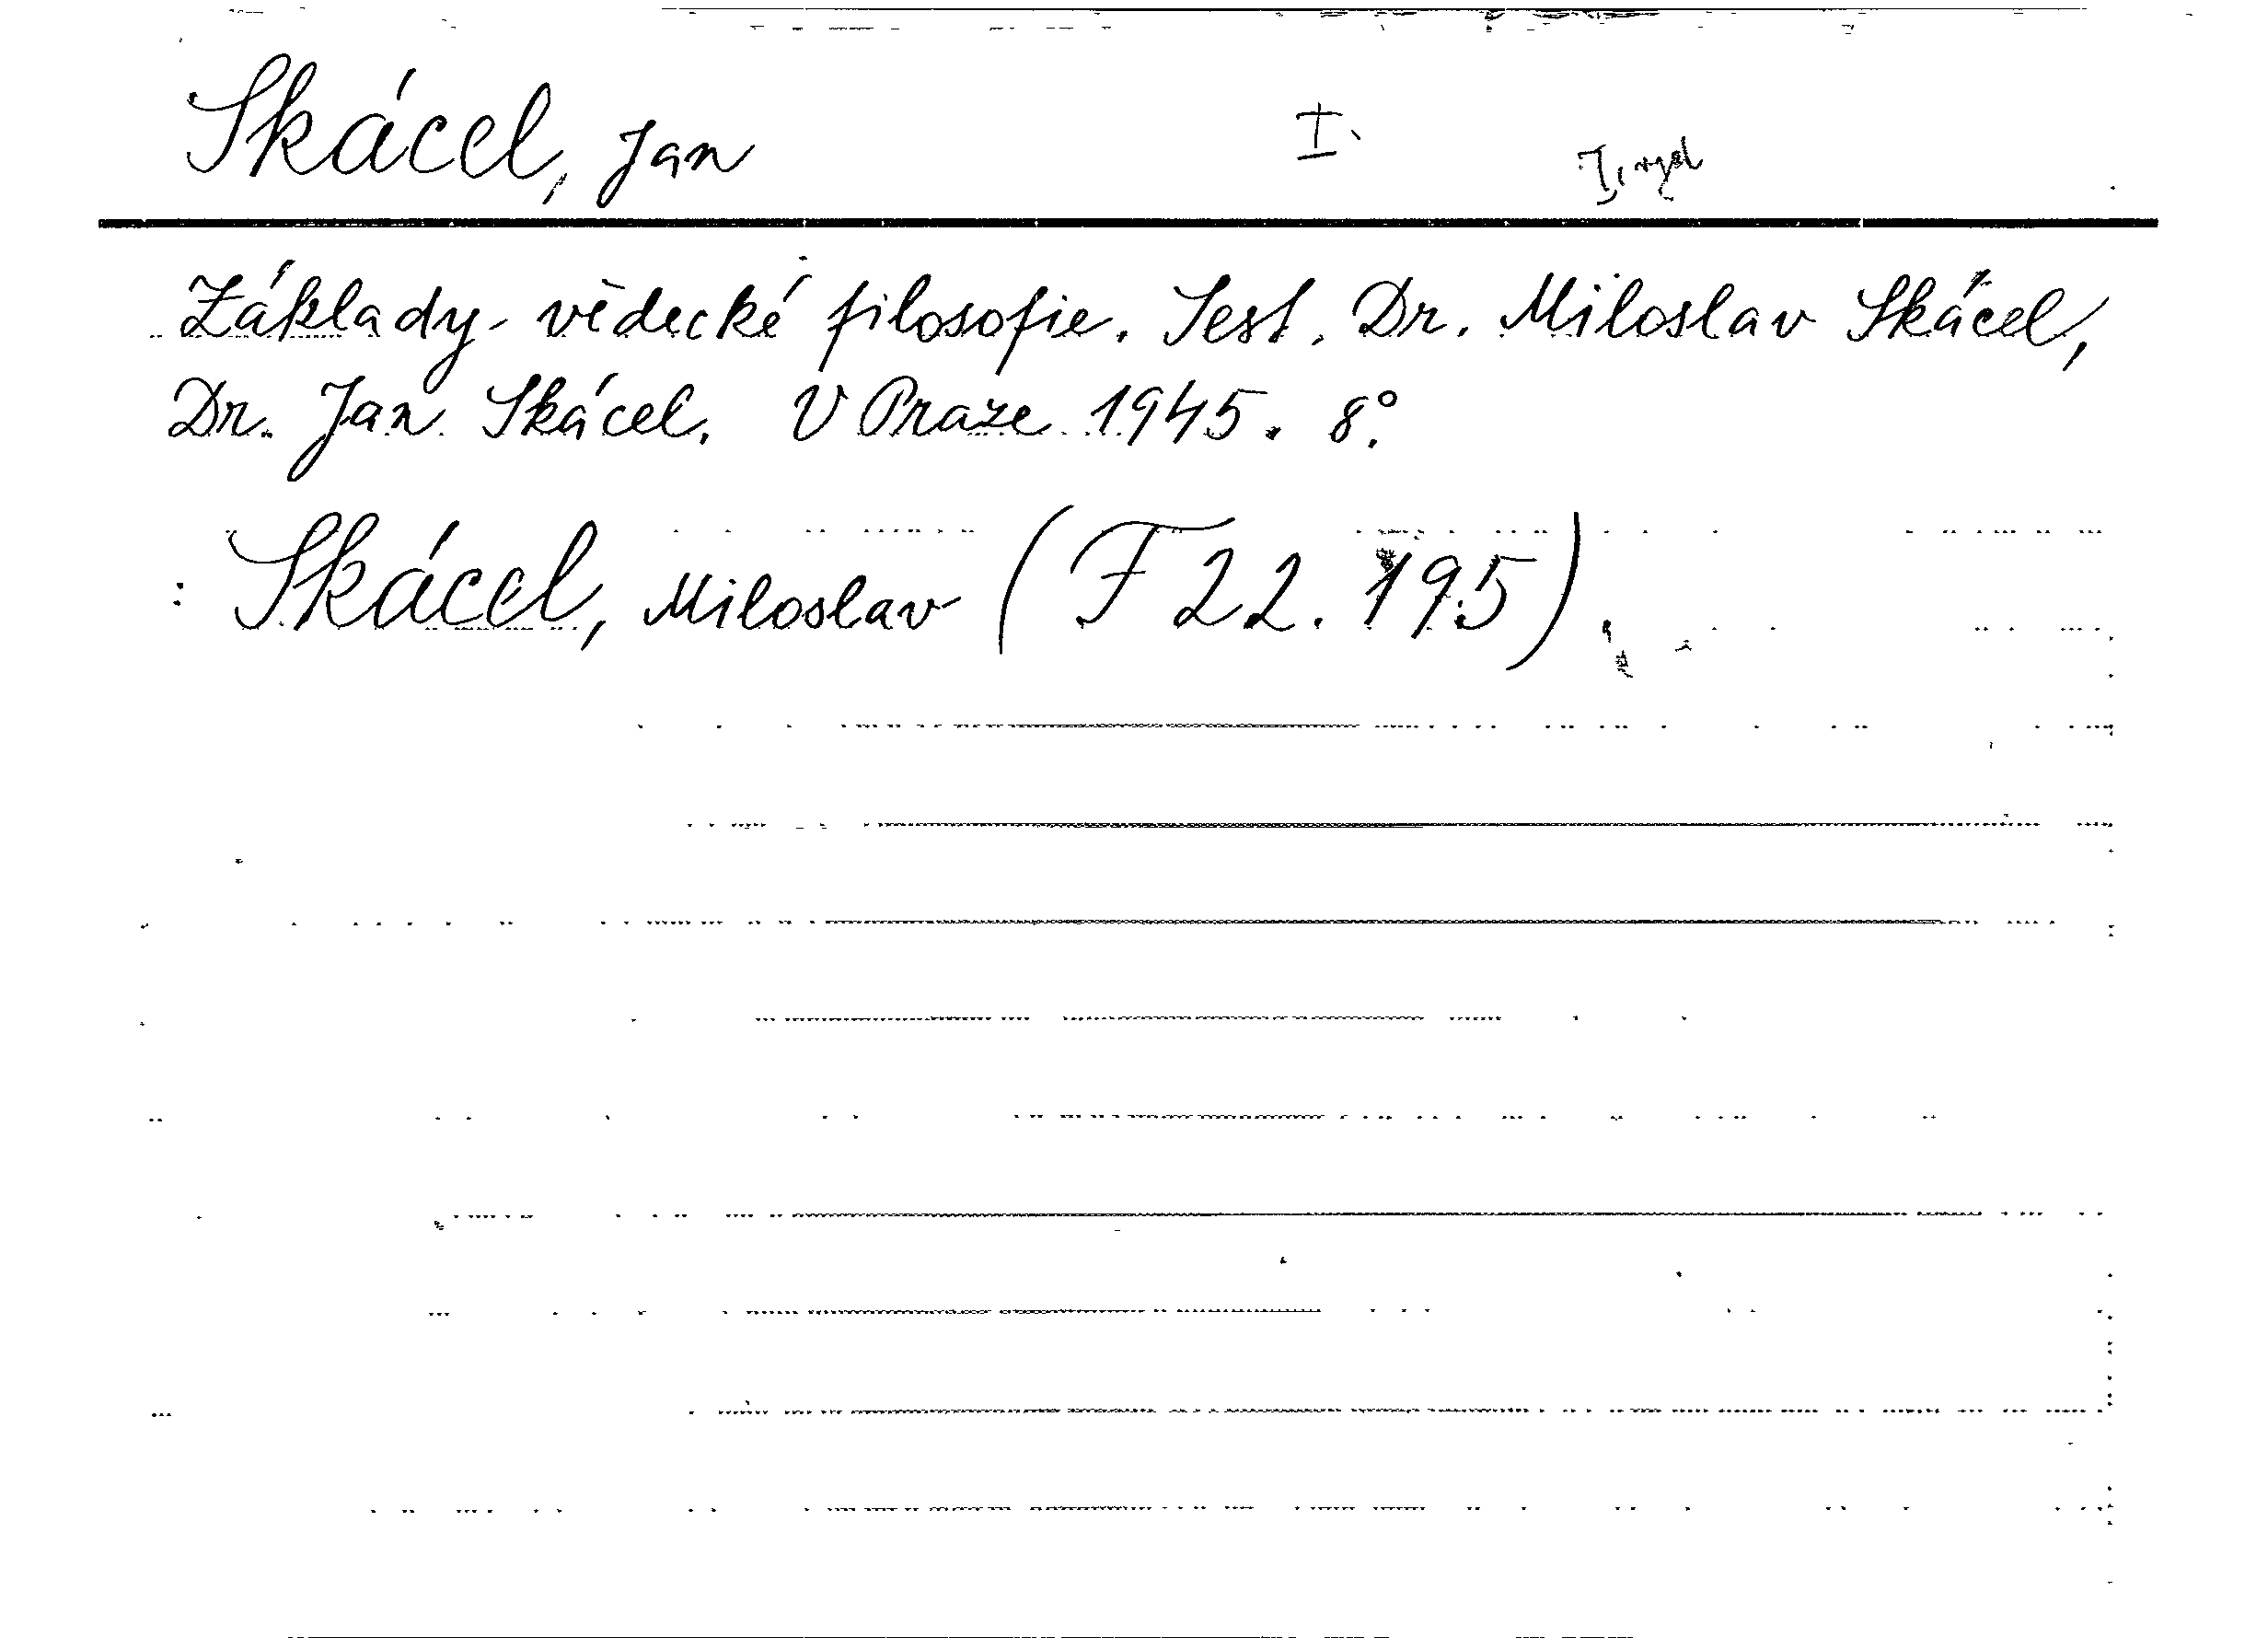 Skácel, Jan I.
Základy vědecké filosofie. Sest. Dr. Miloslav Skácel,
Dr. Jan Skácel. V Praze 1945. 8°.
: Skácel, Miloslav (F 22.195).